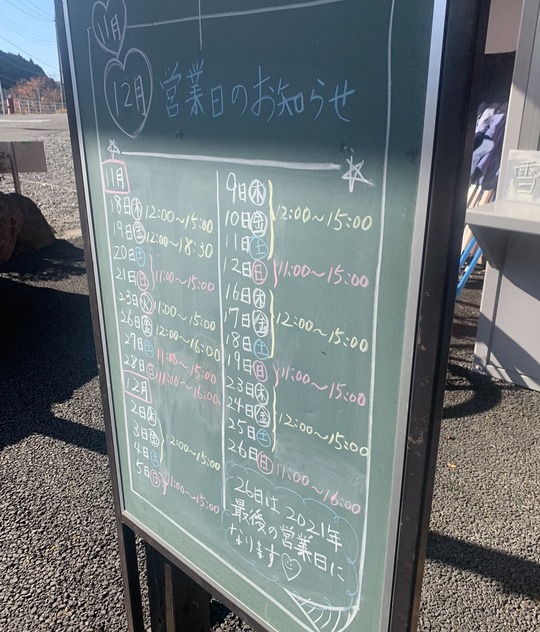 11月
12月 営業日のお知らせ
11月
18日㊍ 12:00~15:00
19日㊎ 12:00~18:30
20日㊏
21日㊐ 11:00~15:00
23日㊋ 11:00~15:00
26日㊎ 12:00~15:00
27日㊏ 11:00~15:00
28日㊐ 11:00~16:00
12月
2日㊍
3日㊎ 12:00~15:00
4日㊏
5日㊐ 11:00~15:00
9日㊍
10日㊎ 12:00~15:00
11日㊏
12日㊐ 11:00~15:00
16日㊍
17日㊎ 12:00~15:00
18日㊏
19日㊐ 11:00~15:00
23日㊍
24日㊎ 12:00~15:00
25日㊏
26日㊐ 11:00~16:00
26日は2021年
最後の営業日に
なります♡
雪